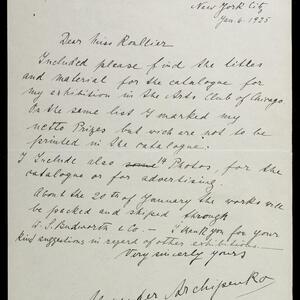 New York City
Jan. 6. 1925
Dear Miss Roullier
Included please find the titles
and material for the catalogue for
my exhibition in the Arts Club of Chicago
On the same list I marked my
netto Prizes but wich are not to be
printed in the catalogue.
I Include also Photos, for the
catalogue or for advertising.
About the 20th of January the works will
be packed and shiped through
W. S. Budworth & Co. – I thank you for your
kind suggestions in regard of other exhibitions –
Very sincerly yours
Archipenko